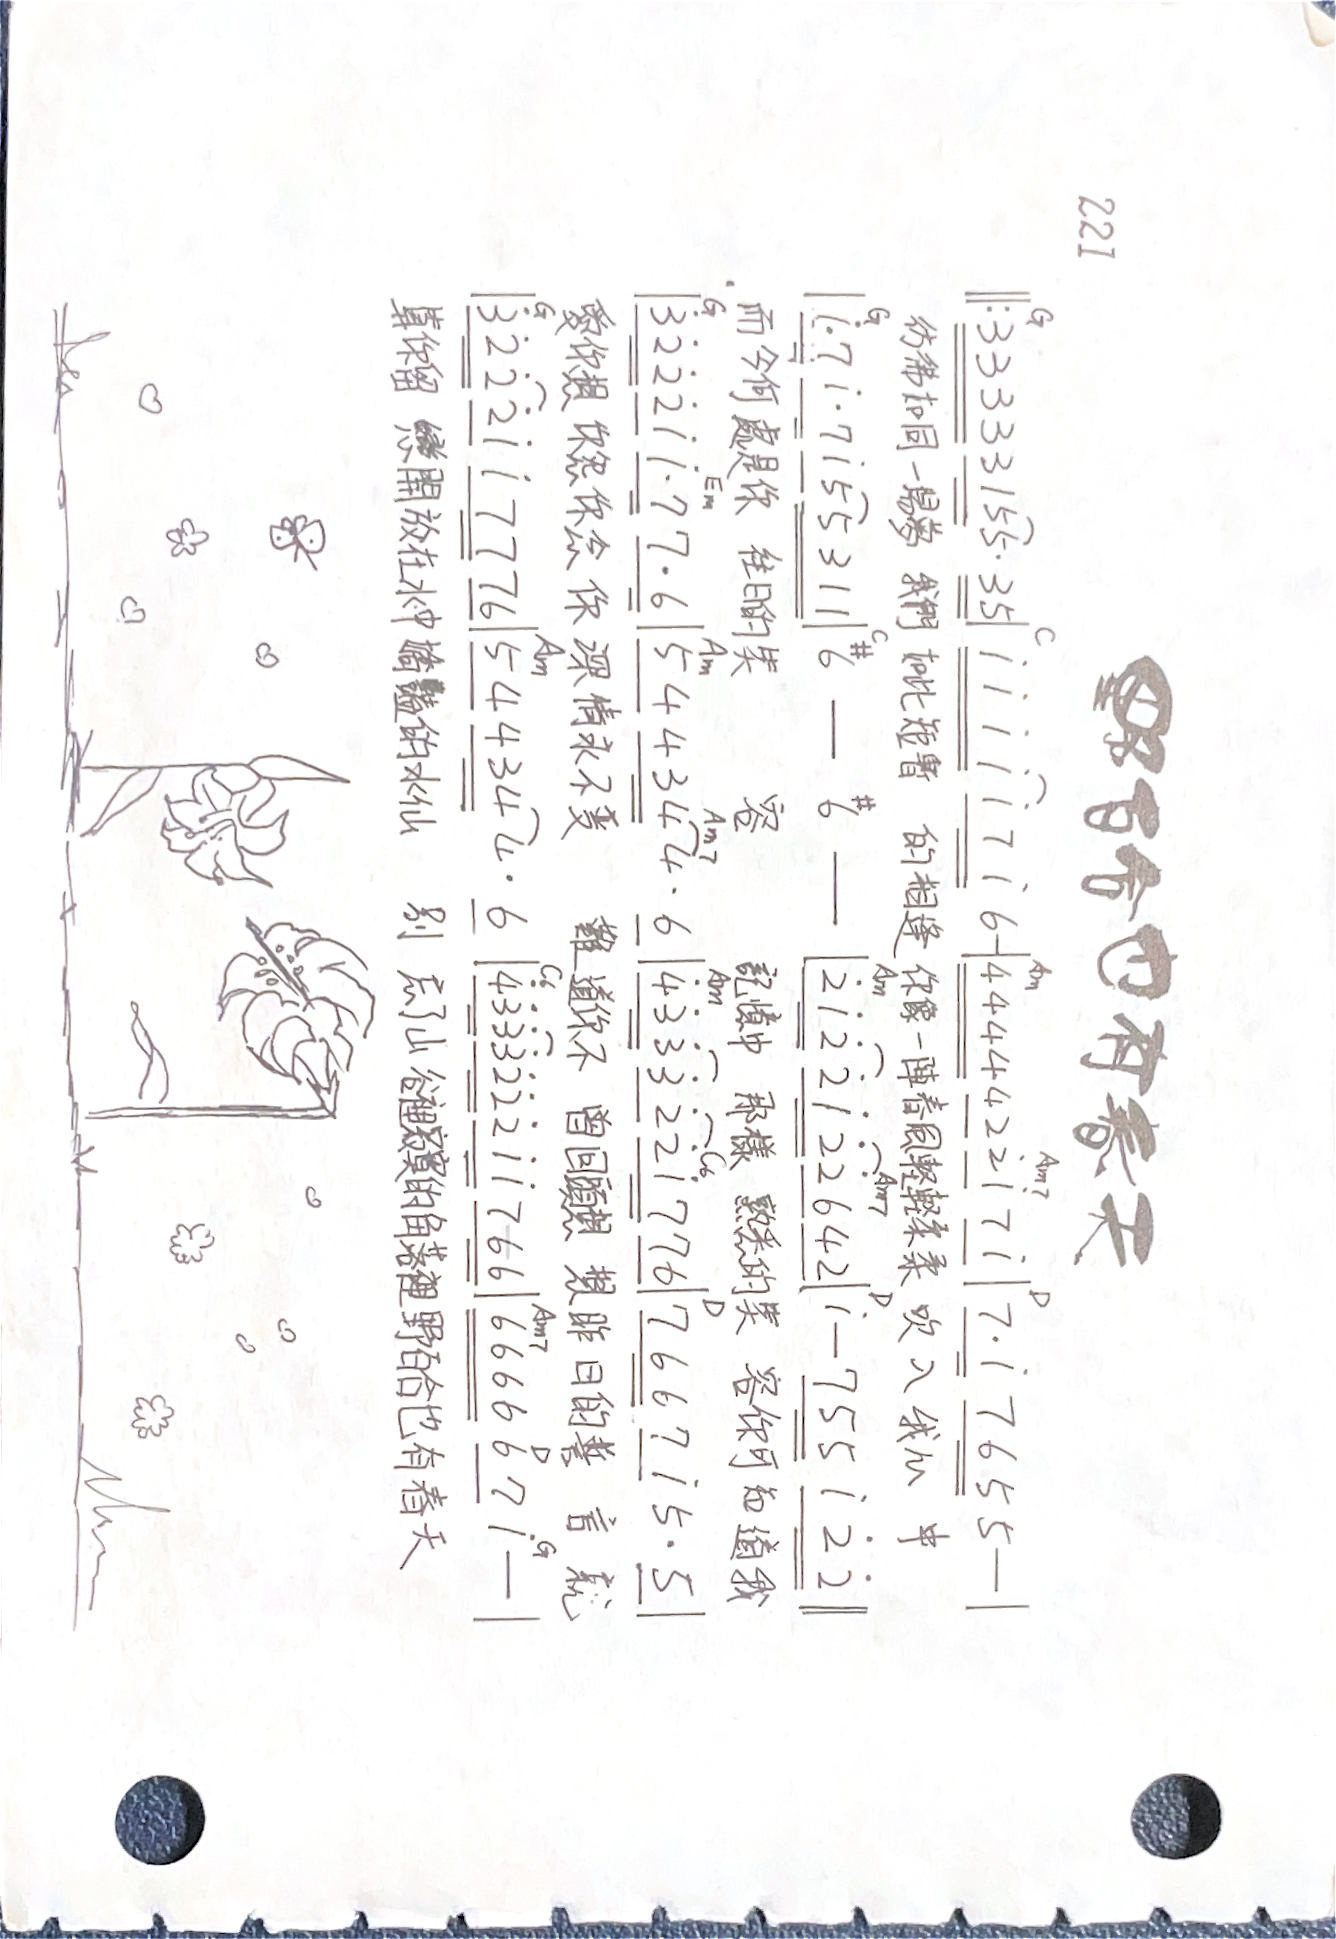 野百合也有春天
221
G C Am Am7 D
‖:33333155·35|i i i i i 7 i 6-|4444422i7i|7·i 7655—|
彷彿如同一場夢 我們 如此短暫 的相逢 你像一陣春風輕輕柔柔 吹入我心 中
G C Am Am7 D
|i·7i·7i553ii|#6 — #6 —|2i22i22642|i—755 i22‖
而今何處是你 往日的笑 容 記憶中 那樣 熟悉的笑 容你可知道我
G Em Am Am7 Am C6 D
|3222ii·77·6|544344· 6|433322i776|7667i5·5|
愛你想你怨你念你 深情永不變 難道你不 曾回頭想 想昨日的誓 言 就
G Am C6 Am7 D G
|3222ii7776|544344· 6|4333222ii766|666667i—|
算你留 戀開放在水中嬌豔的水仙 別 忘了山谷裡寂寞的角落裡野百合也有春天